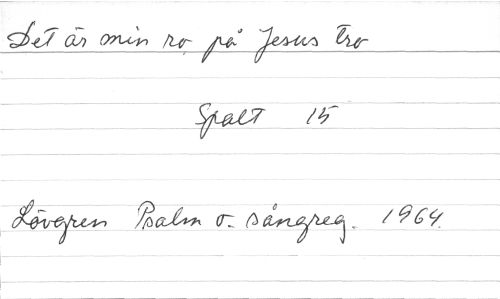 Det är min ro på Jesus tro
Spalt 15
Lövgren Psalm o. sångreg. 1964.